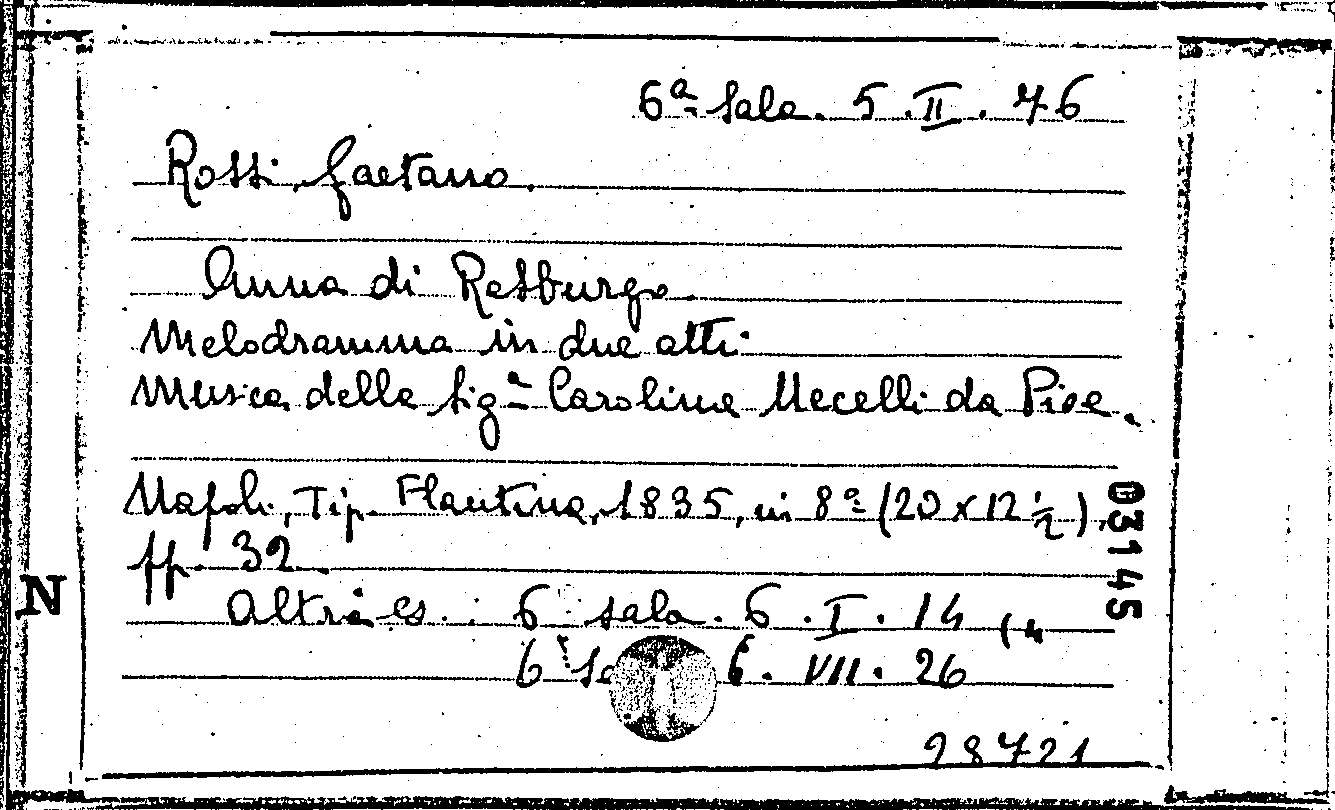 6ª Sala. 5. II. 76
Rossi, Gaetano.
Anna di Resburgo
Melodramma in due atti
Musica della Sigª Carolina Uccelli da Pisa.
Napoli, Tip. Flautina, 1835, in 8º (20 x 12 ½),
pp. 32.
03145
N
Altri es.: 6 sala. 6. I. 14
6ª 6. VII. 26
28721